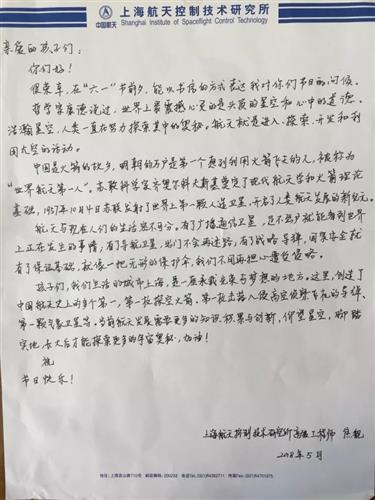 上海航天控制技术研究所
中国航天 Shanghai Institute of Spaceflight Control Technology
亲爱的孩子们：
你们好！
很荣幸，在“六一”节前夕，能以书信的方式表达我对你们节日的问候。
哲学家康德说过，世界上最震撼心灵的是头顶的星空和心中的道德。
浩瀚星空，人类一直在努力探索其中的奥秘。航天就是进入、探索、开发和利
用太空的活动。
中国是火箭的故乡，明朝的万户是第一个想到利用火箭飞天的人，被称为
“世界航天第一人”。苏联科学家齐奥尔科夫斯基奠定了现代航天学和火箭理论
基础，1957年10月4日苏联发射了世界上第一颗人造卫星，开启了人类航天发展的新纪元。
航天与现在人们的生活密不可分。有了广播通信卫星，足不出户就能看到世界
上正在发生的事情，有了导航卫星，出门不会再迷路，有了战略导弹，国家安全就
有了保证基础，就像一把无形的保护伞，我们不用再担心遭受侵略。
孩子们，我们生活的城市上海，是一座承载光荣与梦想的地方。这里，创造了
中国航天史上的多个第一，第一枚探空火箭、第一枚击落入侵高空侦察飞机的导弹、
第一颗气象卫星等。当前航天发展需要更多的知识积累与创新，仰望星空，脚踏
实地，长大后才能探索更多的宇宙奥秘，加油！
祝
节日快乐！
上海航天控制技术研究所高级工程师
2018年5月